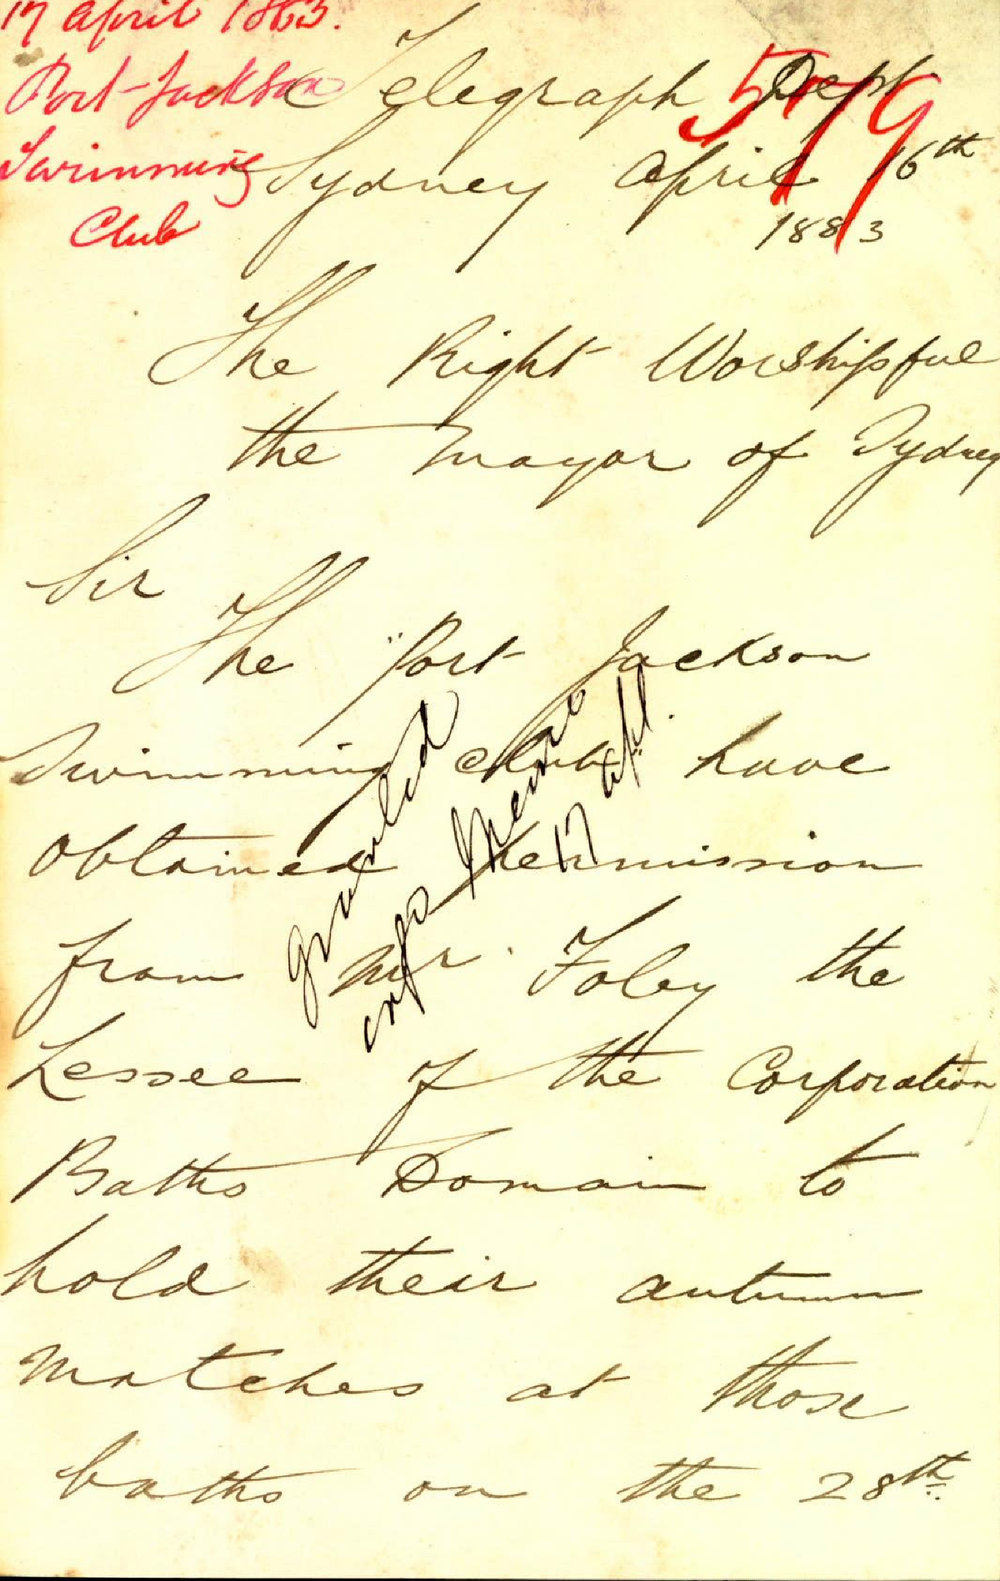 17 April 1883.
Port Jackson
Swimming
Club
579
Telegraph Dept
Sydney April 16th
1883
The Right Worshipful
the Mayor of Sydney
Sir
The "Port Jackson
Swimming Club" have
obtained permission
from Mr. Foley the
Lessee of the Corporation
Baths Domain to
hold their autumn
matches at those
baths on the 28th.
granted
17 Apl.